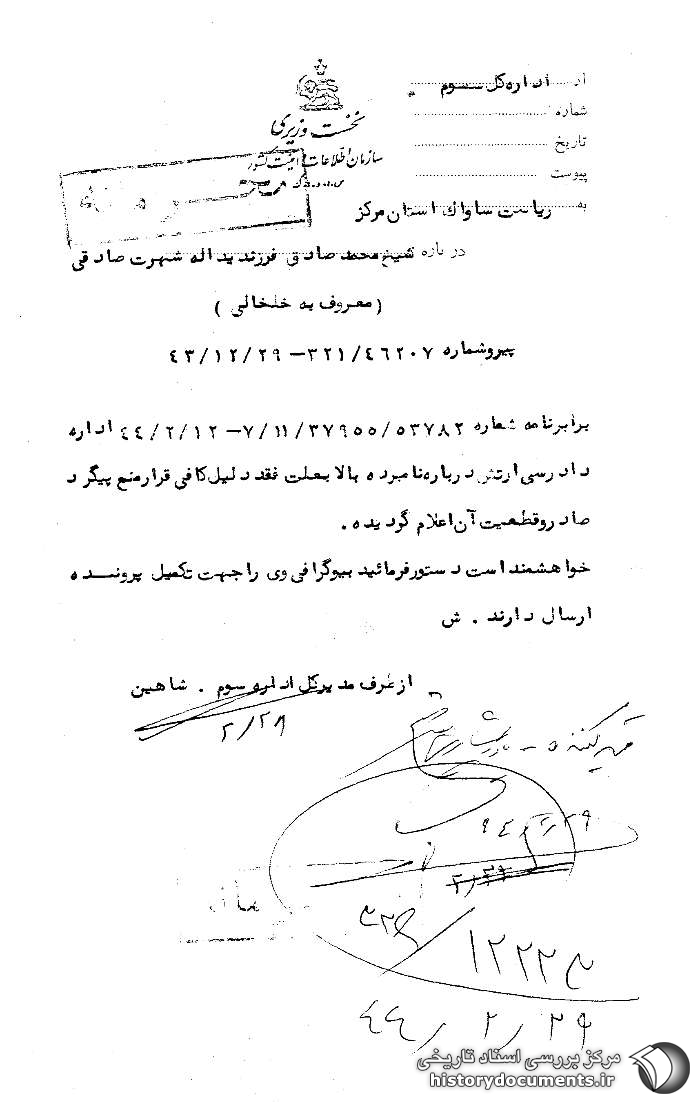 از اداره کل سوم
شماره
تاریخ
پیوست
نخست وزیری
سازمان اطلاعات و امنیت کشور
س.ا.و.ا.ک
به ریاست ساواک استان مرکز
در باره شیخ محمد صادق فرزند یداله شهرت صادقی
(معروف به خلخالی)
پیرو شماره ۳۲۱/۴۶۲۰۷-۴۳/۱۲/۲۹
برابر نامه شماره ۷/۱۱/۳۷۹۵۵/۵۳۷۸۲-۴۴/۲/۱۲ اداره
دادرسی ارتش درباره نامبرده بالا بعلت فقد دلیل کافی قرار منع پیگرد
صادر و قطعیت آن اعلام گردیده.
خواهشمند است دستور فرمائید بیوگرافی وی را جهت تکمیل پرونده
ارسال دارند. ش
از طرف مدیر کل اداره سوم. شاهین
۲/۲۸
۱۲۲۲۳
۴۴/۲/۲۹
مرکز بررسی اسناد تاریخی
historydocuments.ir